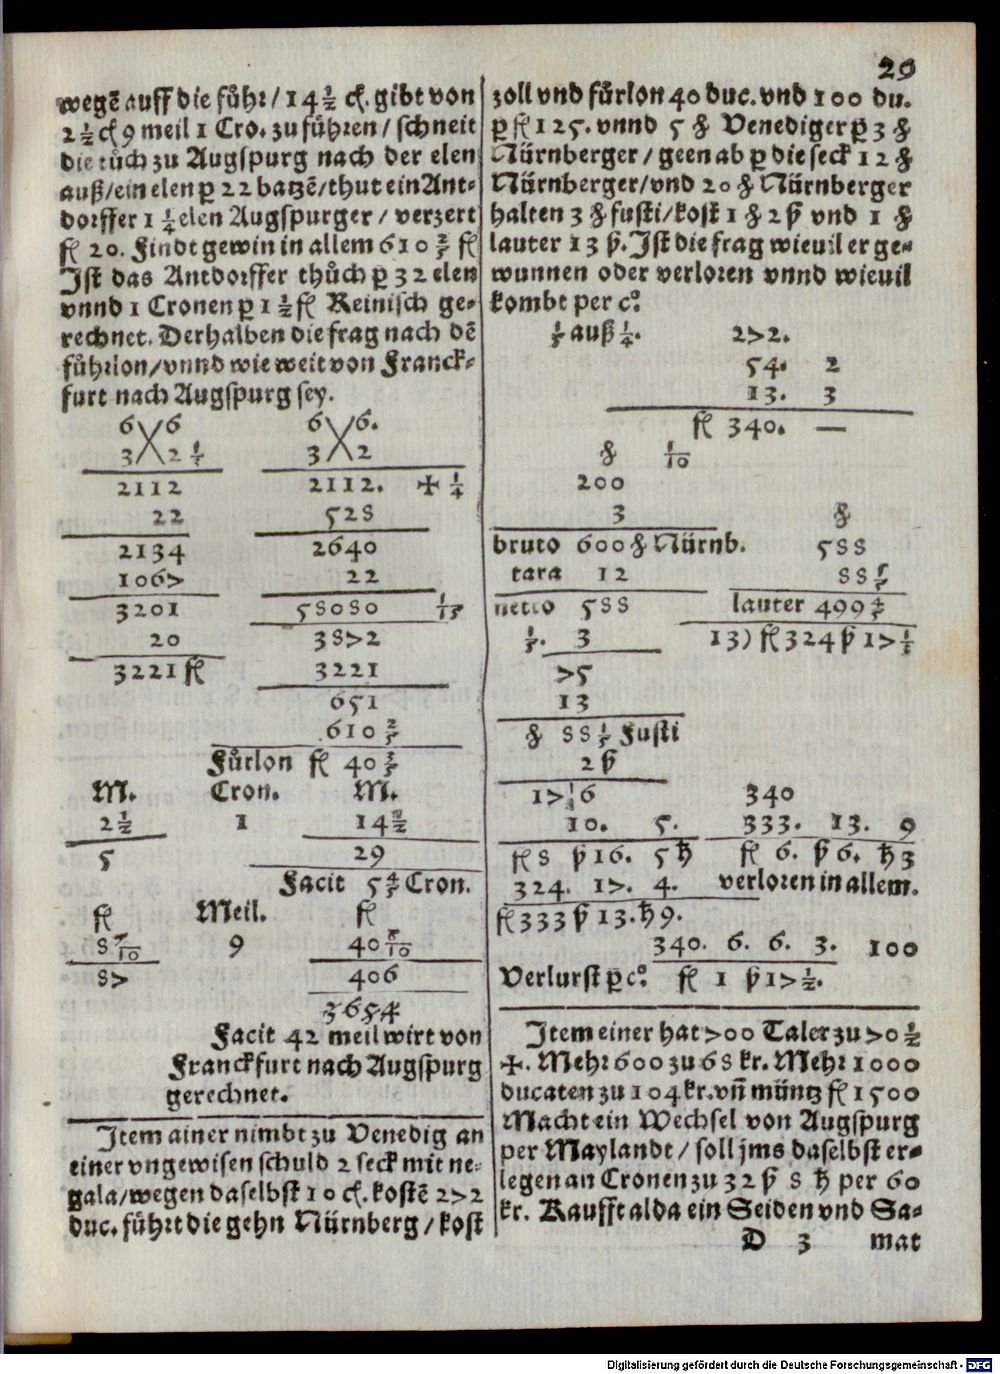 29
wegē auff die fůhr / 14 1/2 cſ. gibt von
2 1/2 cſ 9 meil 1 Cro. zu fůhren / schneit
die tůch zu Augspurg nach der elen
auß/ein elen p̱ 22 batzē/thut ein Ant-
dorffer 1 1/4 elen Augspurger / verzert
fl 20. Findt gewin in allem 610 2/5 fl
Ist das Antdorffer thůch p̱ 32 elen
vnnd 1 Cronen p̱ 1 1/2 fl Reinisch ge-
rechnet. Derhalben die frag nach dē
fůhrlon/vnnd wie weit von Franck-
furt nach Augspurg sey.
6 6 6 6.
3 2 1/5 3 2
2112 2112. + 1/4
22 528
2134 2640
1067 22
3201 58080 1/15
20 3872
3221 fl 3221
651
610 2/5
Fůrlon fl 40 3/5
M. Cron. M.
2 1/2 1 14 1/2
5 29
Facit 5 4/5 Cron.
fl Meil. fl
8 7/10 9 40 6/10
87 406
3654
Facit 42 meil wirt von
Franckfurt nach Augspurg
gerechnet.
Item ainer nimbt zu Venedig an
einer vngewisen schuld 2 seck mit ne-
gala/wegen daselbst 10 cſ. kostē 272
duc. fůhrt die gehn Nürnberg / kost
zoll vnd fůrlon 40 duc. vnd 100 du.
p̱ fl 125. vnnd 5 ℔ Venediger p̱ 3 ℔
Nürnberger / geen ab p̱ die seck 12 ℔
Nürnberger/vnd 20 ℔ Nürnberger
halten 3 ℔ fusti/kost 1 ℔ 2 ß vnd 1 ℔
lauter 13 ß. Ist die frag wieuil er ge-
wunnen oder verloren vnnd wieuil
kombt per c°.
1/5 auß 1/4. 272.
54. 2
13. 3
fl 340. —
℔ 1/10
200
3 ℔
bruto 600 ℔ Nürnb. 588
tara 12 88 1/5
netto 588 lauter 499 4/5
1/5. 3 13) fl 324 ß 17 1/2
75
13
℔ 88 1/5 Fusti
2 ß
17 6 340
10. 5. 333. 13. 9
fl 8 ß 16. 5 ₰ fl 6. ß 6. ₰ 3
324. 17. 4. verloren in allem.
fl 333 ß 13. ₰ 9.
340. 6. 6. 3. 100
Verlurst p̱ c°. fl 1 ß 17 1/2.
Item einer hat 700 Taler zu 70 1/2
+. Mehr 600 zu 68 kr. Mehr 1000
ducaten zu 104 kr. vñ müntz fl 1500
Macht ein Wechsel von Augspurg
per Maylandt / soll jms daselbst er-
legen an Cronen zu 32 ß 8 ₰ per 60
kr. Kaufft alda ein Seiden vnd Sa-
D 3 mat
Digitalisierung gefördert durch die Deutsche Forschungsgemeinschaft - DFG